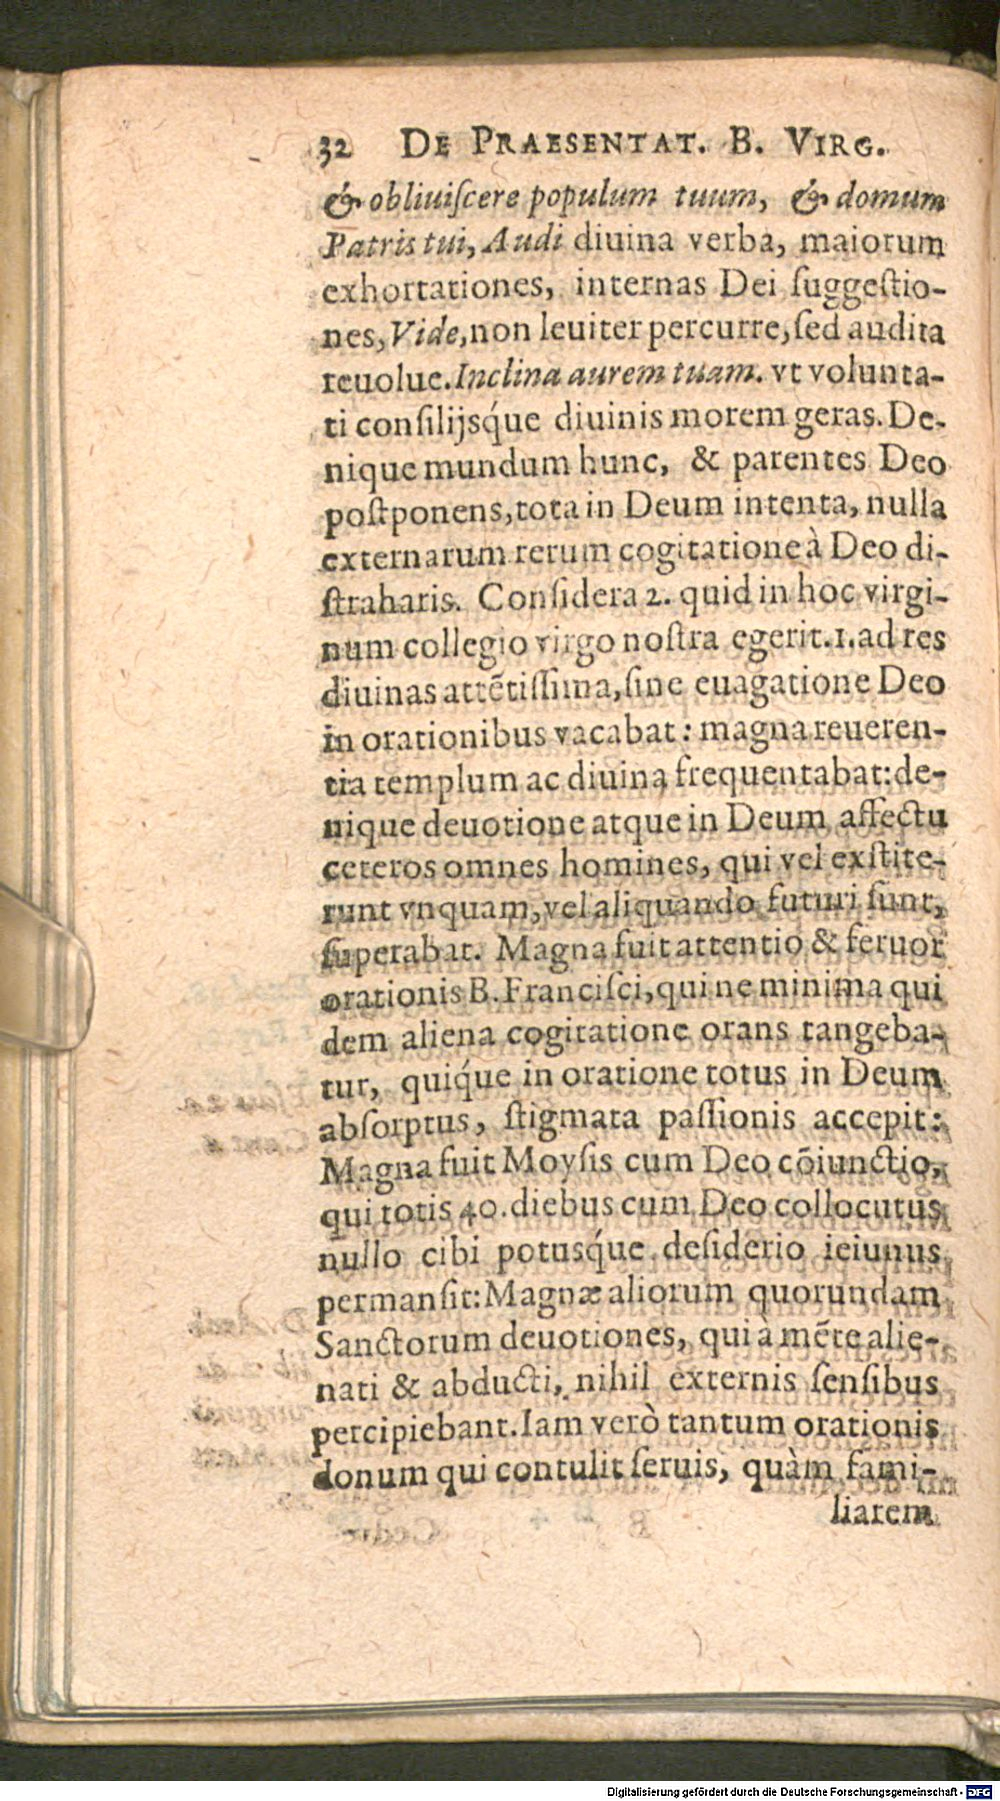 32 DE PRAESENTAT. B. VIRG.
& obliuiſcere populum tuum, & domum
Patris tui, Audi diuina verba, maiorum
exhortationes, internas Dei ſuggeſtio-
nes, Vide, non leuiter percurre, ſed audita
reuolue. Inclina aurem tuam. vt volunta-
ti conſilijsq́ue diuinis morem geras. De-
nique mundum hunc, & parentes Deo
poſtponens, tota in Deum intenta, nulla
externarum rerum cogitatione à Deo di-
ſtraharis. Conſidera 2. quid in hoc virgi-
num collegio virgo noſtra egerit. 1. ad res
diuinas attētiſſima, ſine euagatione Deo
in orationibus vacabat: magna reueren-
tia templum ac diuina frequentabat: de-
nique deuotione atque in Deum affectu
ceteros omnes homines, qui vel exſtite-
runt vnquam, vel aliquando futuri ſunt,
ſuperabat. Magna fuit attentio & feruor
orationis B. Franciſci, qui ne minima qui
dem aliena cogitatione orans tangeba-
tur, quiq́ue in oratione totus in Deum
abſorptus, ſtigmata paſſionis accepit:
Magna fuit Moyſis cum Deo cōiunctio,
qui totis 40. diebus cum Deo collocutus
nullo cibi potusq́ue deſiderio ieiunus
permanſit: Magnæ aliorum quorundam
Sanctorum deuotiones, qui à mēte alie-
nati & abducti, nihil externis ſenſibus
percipiebant. Iam verò tantum orationis
donum qui contulit ſeruis, quàm fami-
liarem
Digitalisierung gefördert durch die Deutsche Forschungsgemeinschaft - DFG